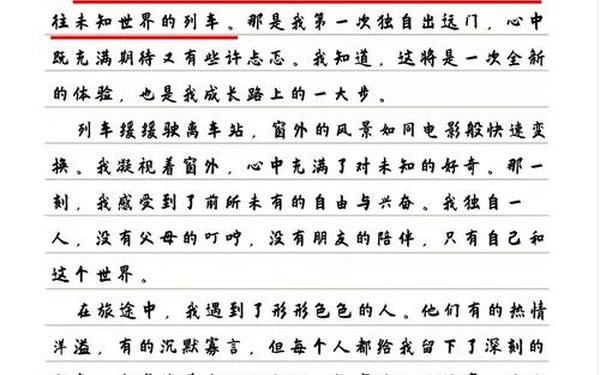 往未知世界的列车。那是我第一次独自出远门，心中
既充满期待又有些许忐忑。我知道，这将是一次全新
的体验，也是我成长路上的一大步。
列车缓缓驶离车站，窗外的风景如同电影般快速变
换。我凝视着窗外，心中充满了对未知的好奇。那一
刻，我感受到了前所未有的自由与兴奋。我独自一
人，没有父母的叮咛，没有朋友的陪伴，只有自己和
这个世界。
在旅途中，我遇到了形形色色的人。他们有的热情
洋溢，有的沉默寡言，但每个人都给我留下了深刻的